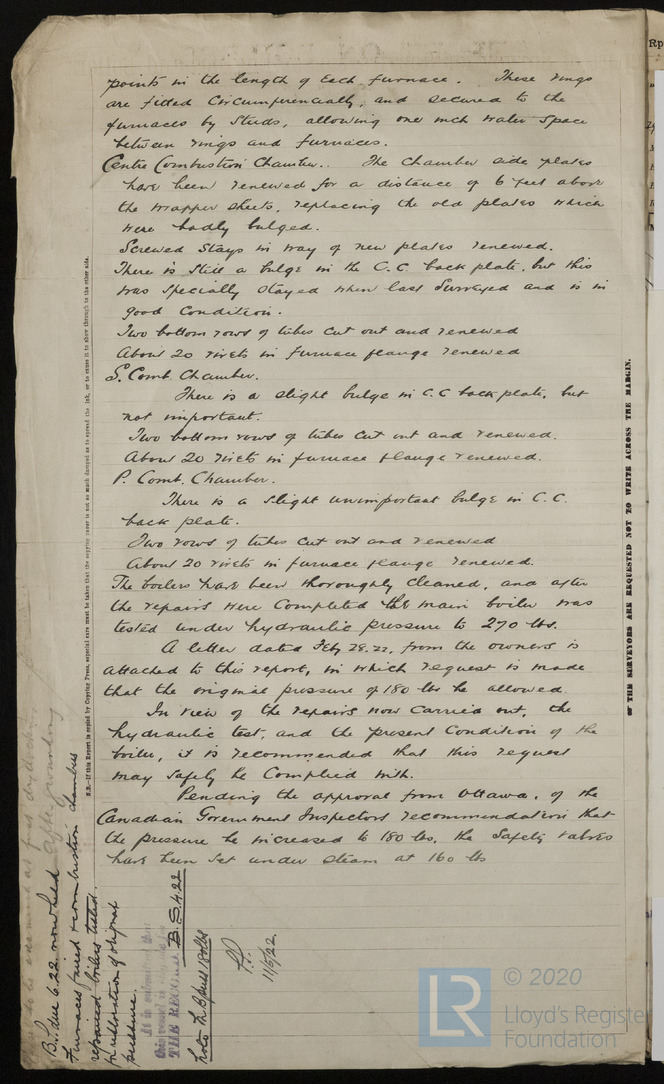 points in the length of Each furnace. These rings
are fitted Circumferencially, and secured to the
furnaces by Studs, allowing one inch water space
between rings and furnaces.
Centre Combustion Chamber.. The chamber side plates
have been renewed for a distance of 6 feet above
the wrapper sheets, replacing the old plates which
were badly bulged.
Screwed Stays in way of new plates renewed.
There is still a bulge in the C.C back plate, but this
was specially stayed when last Surveyed and is in
good condition.
Two bottom rows of tubes cut out and renewed
About 20 rivets in furnace flange renewed
S. Comb. Chamber.
There is a slight bulge in C.C back plate, but
not important.
Two bottom rows of tubes cut out and renewed.
About 20 rivets in furnace flange renewed.
P. Comb. Chamber.
There is a slight unimportant bulge in C.C.
back plate.
Two rows of tubes cut out and renewed
About 20 rivets in furnace flange renewed.
The boilers have been thoroughly cleaned, and after
the repairs were completed the main boiler was
tested under hydraulic pressure to 270 lbs.
A letter dated Feby 28.22, from the owners is
attached to this report, in which request is made
that the original pressure of 180 lbs be allowed.
In view of the repairs now carried out, the
hydraulic test, and the present condition of the
boiler, it is recommended that this request
may safely be complied with.
Pending the approval from Ottawa, of the
Canadian Government Inspectors recommendation that
the pressure be increased to 180 lbs, the Safety valves
have been set under steam at 160 lbs
N.B.—If this Report is copied by Copying Press, especial care must be taken that the copying paper is not so much damped as to spread the ink, or to cause it to show through to the other side.
THE SURVEYORS ARE REQUESTED NOT TO WRITE ACROSS THE MARGIN.
after grounding
B.S. due 6.22 now held
Furnaces faired & combustion chambers
repaired boilers tested
for restoration of original
pressure.
It is submitted that
this vessel is eligible for
THE RECORD. B.S. 4.22
180lbs
11/5/22.
Rp
© 2020
Lloyd's Registe
Foundation
LR